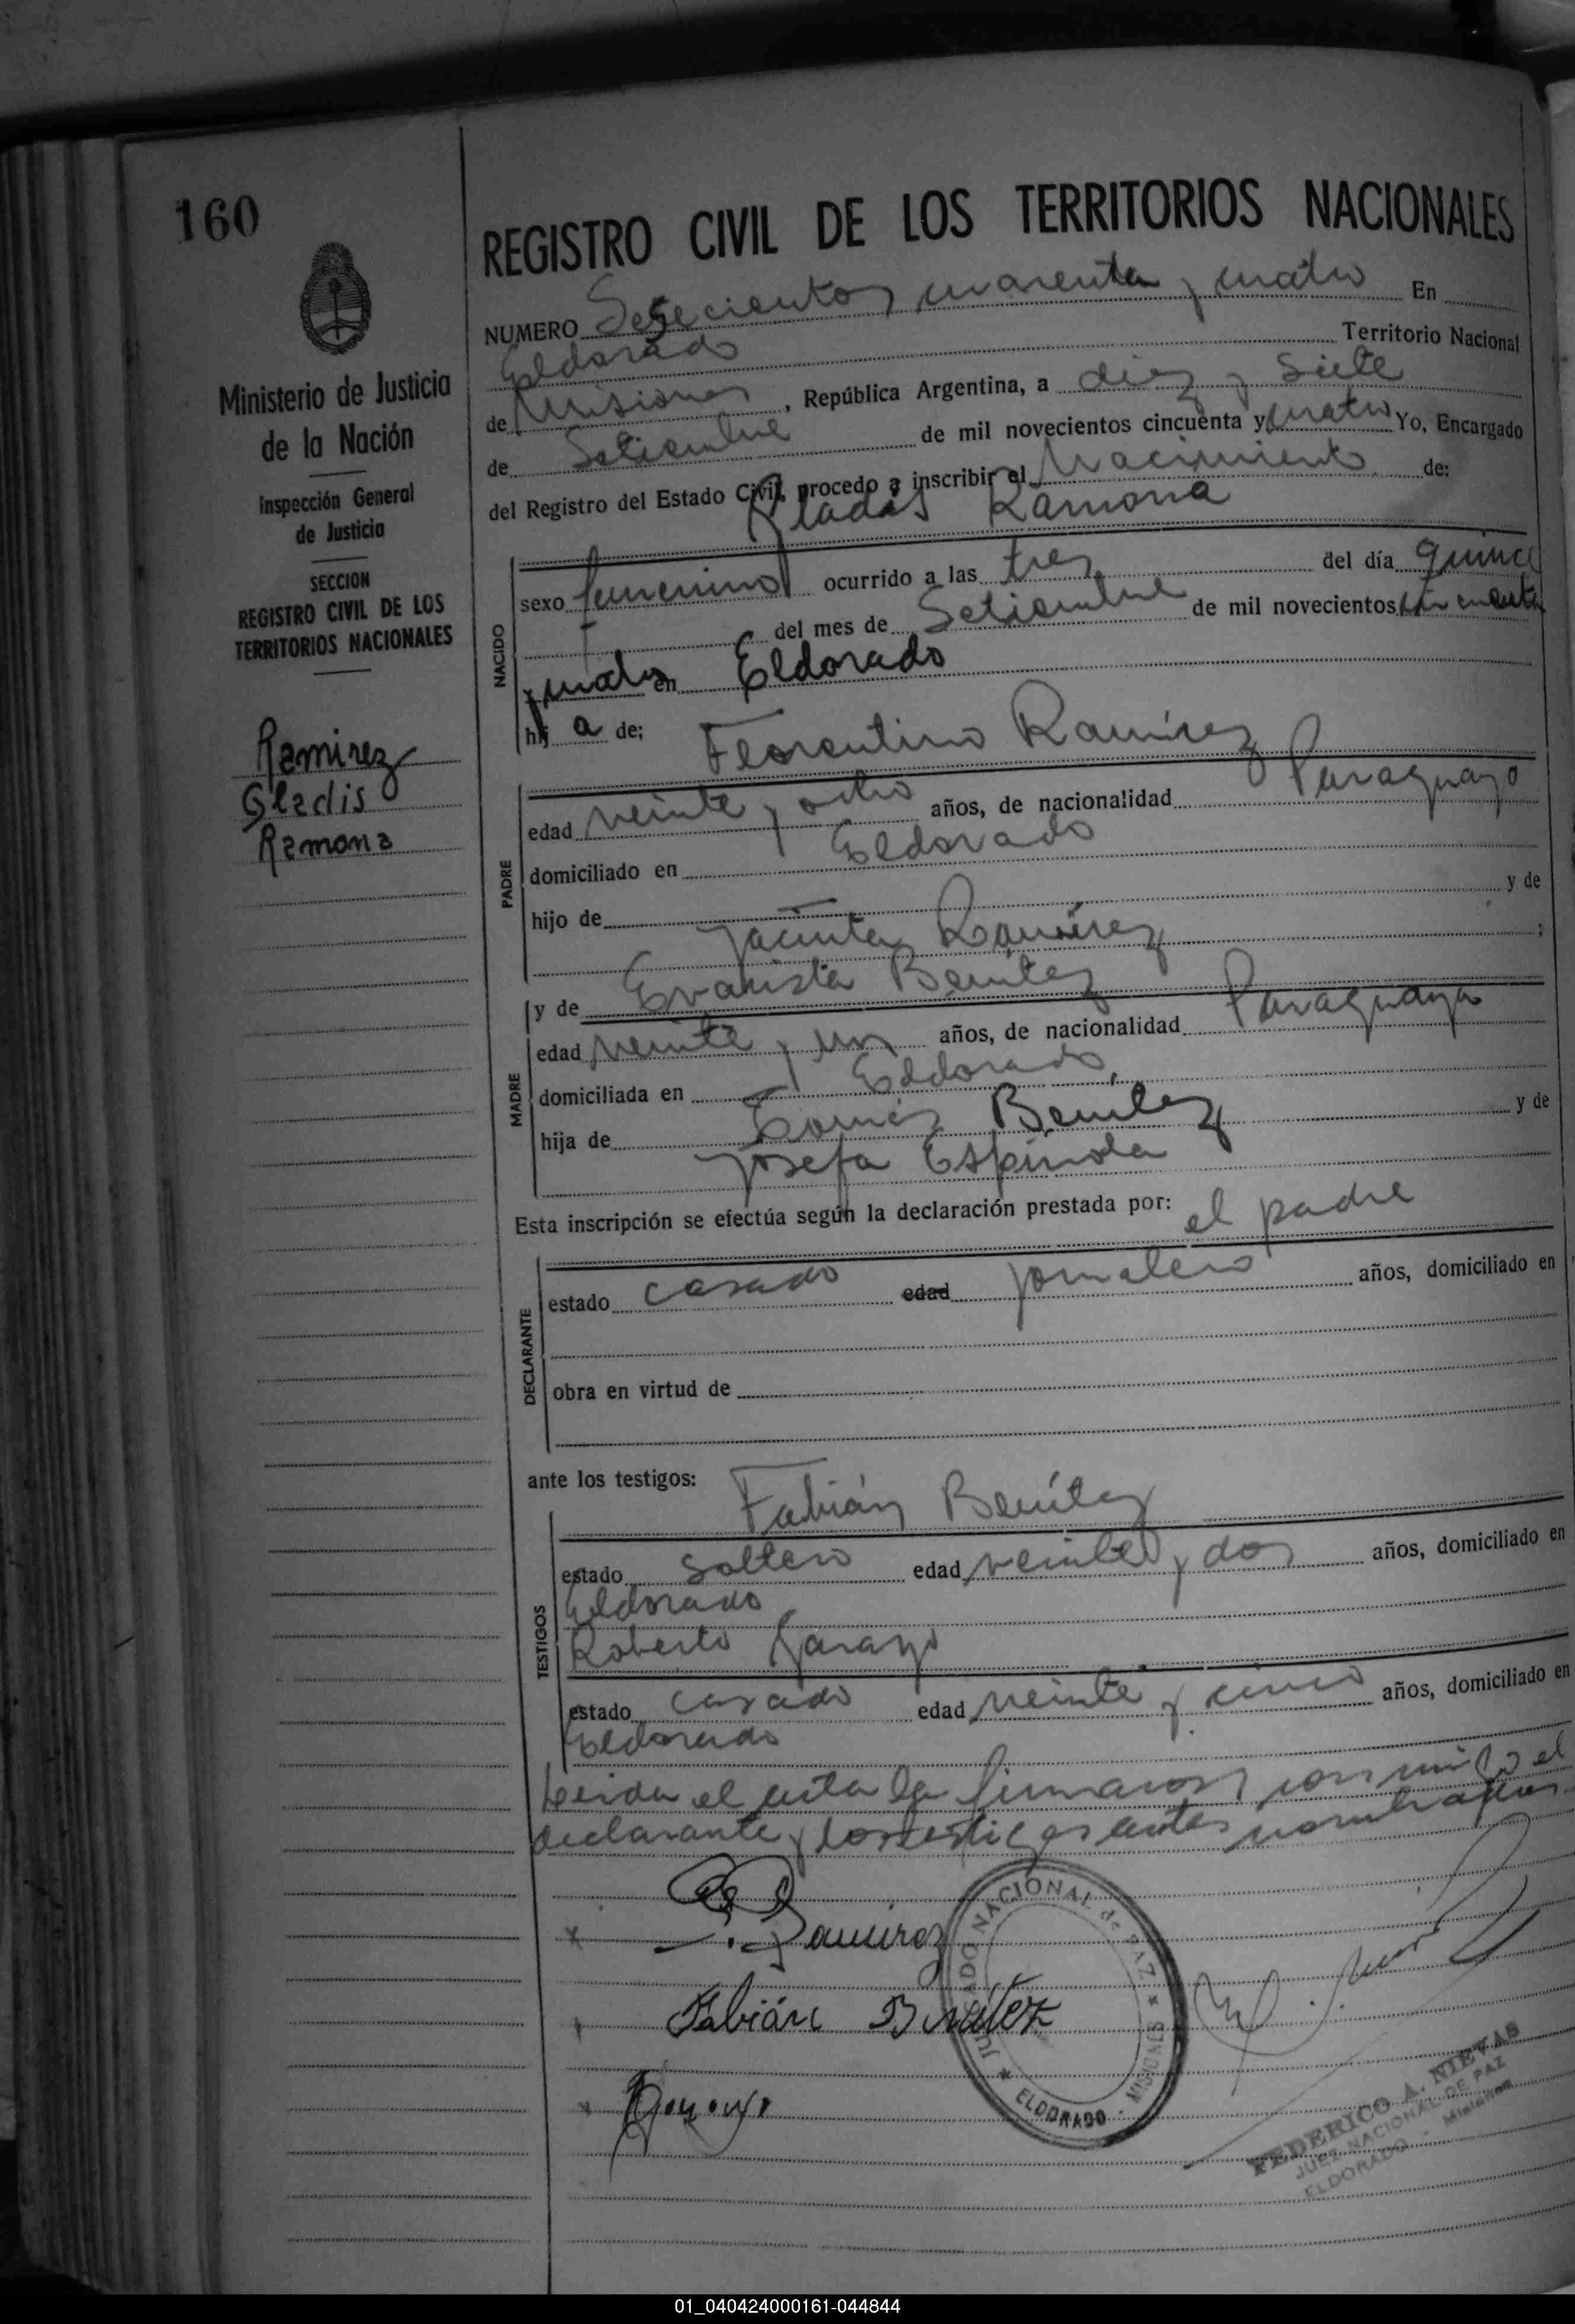 160
REGISTRO CIVIL DE LOS TERRITORIOS NACIONALES
NUMERO Setecientos cuarenta y cuatro En
Eldorado Territorio Nacional
de Misiones, República Argentina, a diez y siete
de Setiembre de mil novecientos cincuenta y cuatro Yo, Encargado
del Registro del Estado Civil, procedo a inscribir el Nacimiento de:
Gladis Ramona
NACIDO
sexo femenino ocurrido a las tres del día quince
del mes de Setiembre de mil novecientos cincuenta
y cuatro en Eldorado
hij a de; Florentino Ramírez
PADRE
edad veinte y ocho años, de nacionalidad Paraguayo
domiciliado en Eldorado
hijo de y de
Jacinta Ramírez ;
y de Evarista Benítez
MADRE
edad veinte y un años, de nacionalidad Paraguaya
domiciliada en Eldorado
hija de Tomás Benítez y de
Josefa Espínola
Esta inscripción se efectúa según la declaración prestada por: el padre
DECLARANTE
estado casado edad jornalero años, domiciliado en
obra en virtud de
ante los testigos: Fabián Benítez
TESTIGOS
estado soltero edad veinte y dos años, domiciliado en
Eldorado
Roberto Garayo
estado casado edad veinte y cinco años, domiciliado en
Eldorado
Leida el acta la firmaron conmigo el
declarante y los testigos antes nombrados
Ramirez
Fabián Benitez
JUZGADO NACIONAL de PAZ
ELDORADO - MISIONES
FEDERICO A. NIEVAS
JUEZ NACIONAL DE PAZ
ELDORADO - Misiones
Ministerio de Justicia
de la Nación
Inspección General
de Justicia
SECCION
REGISTRO CIVIL DE LOS
TERRITORIOS NACIONALES
Ramirez
Gladis
Ramona
01_040424000161-044844